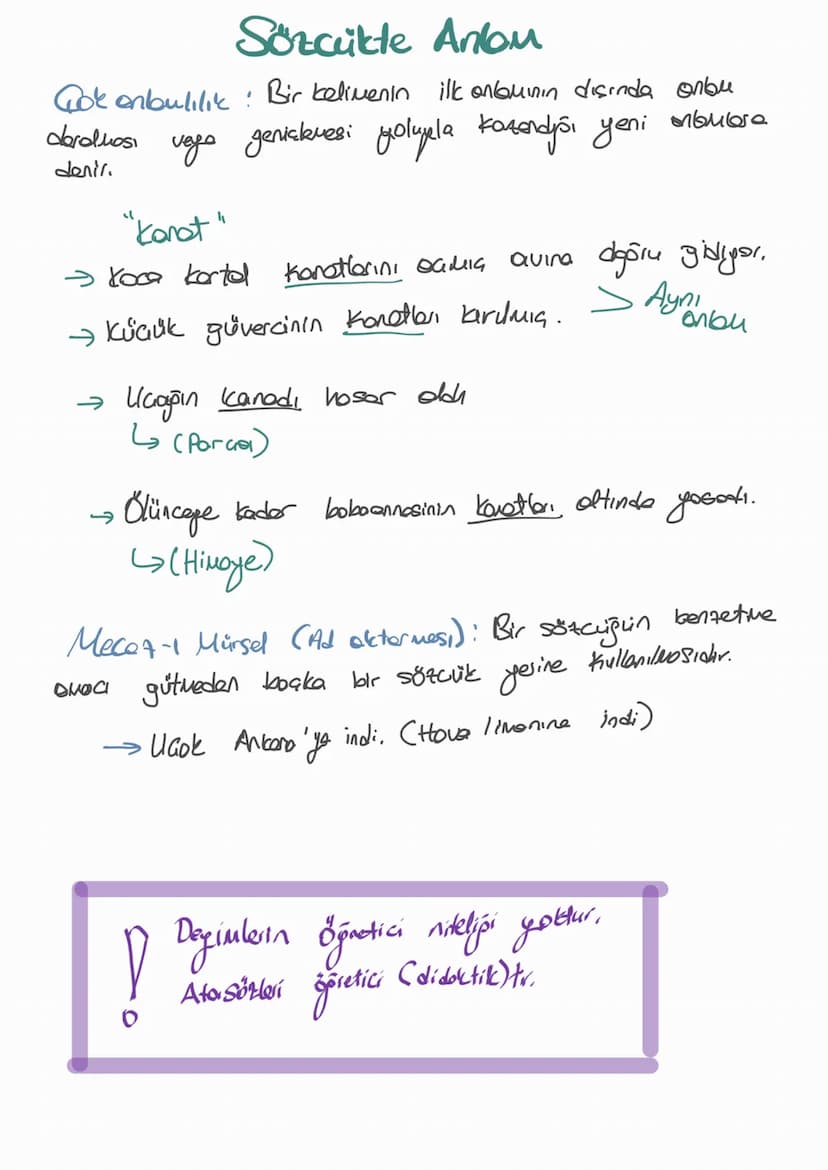 Sözcükte Anlam
Çok anlamlılık : Bir kelimenin ilk anlamının dışında anlam
daralması veya genişlemesi yoluyla kazandığı yeni anlamlara
denir.
"Kanat"
→ Koca kartal kanatlarını açmış avına doğru gidiyor.
→ Küçük güvercinin kanatları kırılmış. > Aynı
anlam
→ Uçağın kanadı hasar aldı
↳ (Parçası)
→ Ölünceye kadar babaannesinin kanatları altında yaşadı.
↳ (Himaye)
Mecaz-ı Mürsel (Ad aktarması) : Bir sözcüğün benzetme
amacı gütmeden başka bir sözcük yerine kullanılmasıdır.
→ Uçak Ankara'ya indi. (Hava limanına indi)
! Deyimlerin öğretici niteliği yoktur.
Atasözleri öğretici (didaktik)tir.